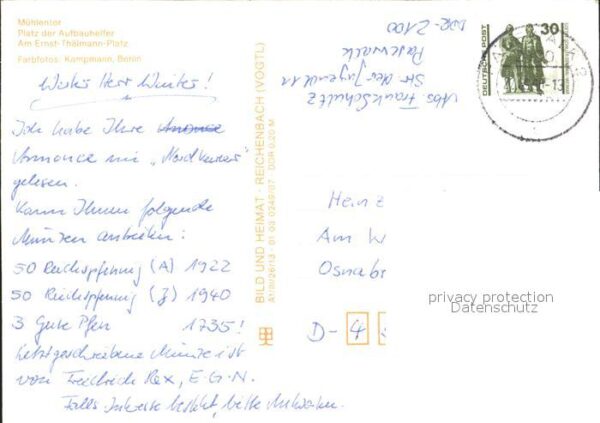 Mühlentor
Platz der Aufbauhelfer
Am Ernst-Thälmann-Platz
Farbfotos: Kampmann, Beren
Werter Herr Winter!
Ich habe Ihre Annonce
Annonce im „Nordkurier"
gelesen.
Kann Ihnen folgende
Münzen anbieten:
50 Reichspfennig (A) 1922
50 Reichspfennig (J) 1940
3 Gute Pfen 1735!
Letztgeschriebene Münze ist
von Friedrich Rex, E.G.N.
Falls Interesse besteht, bitte Antworten.
BILD UND HEIMAT · REICHENBACH (VOGTL)
A1/IV/26/13 · 01 03 0249/07 · DDR 0,20 M
Abs. Frank Schultz
Str der Jugend 12
Pasewalk
DDR-2100
DEUTSCHE POST
30
Heinz
Am W
Osnab
D-4
privacy protection
Datenschutz